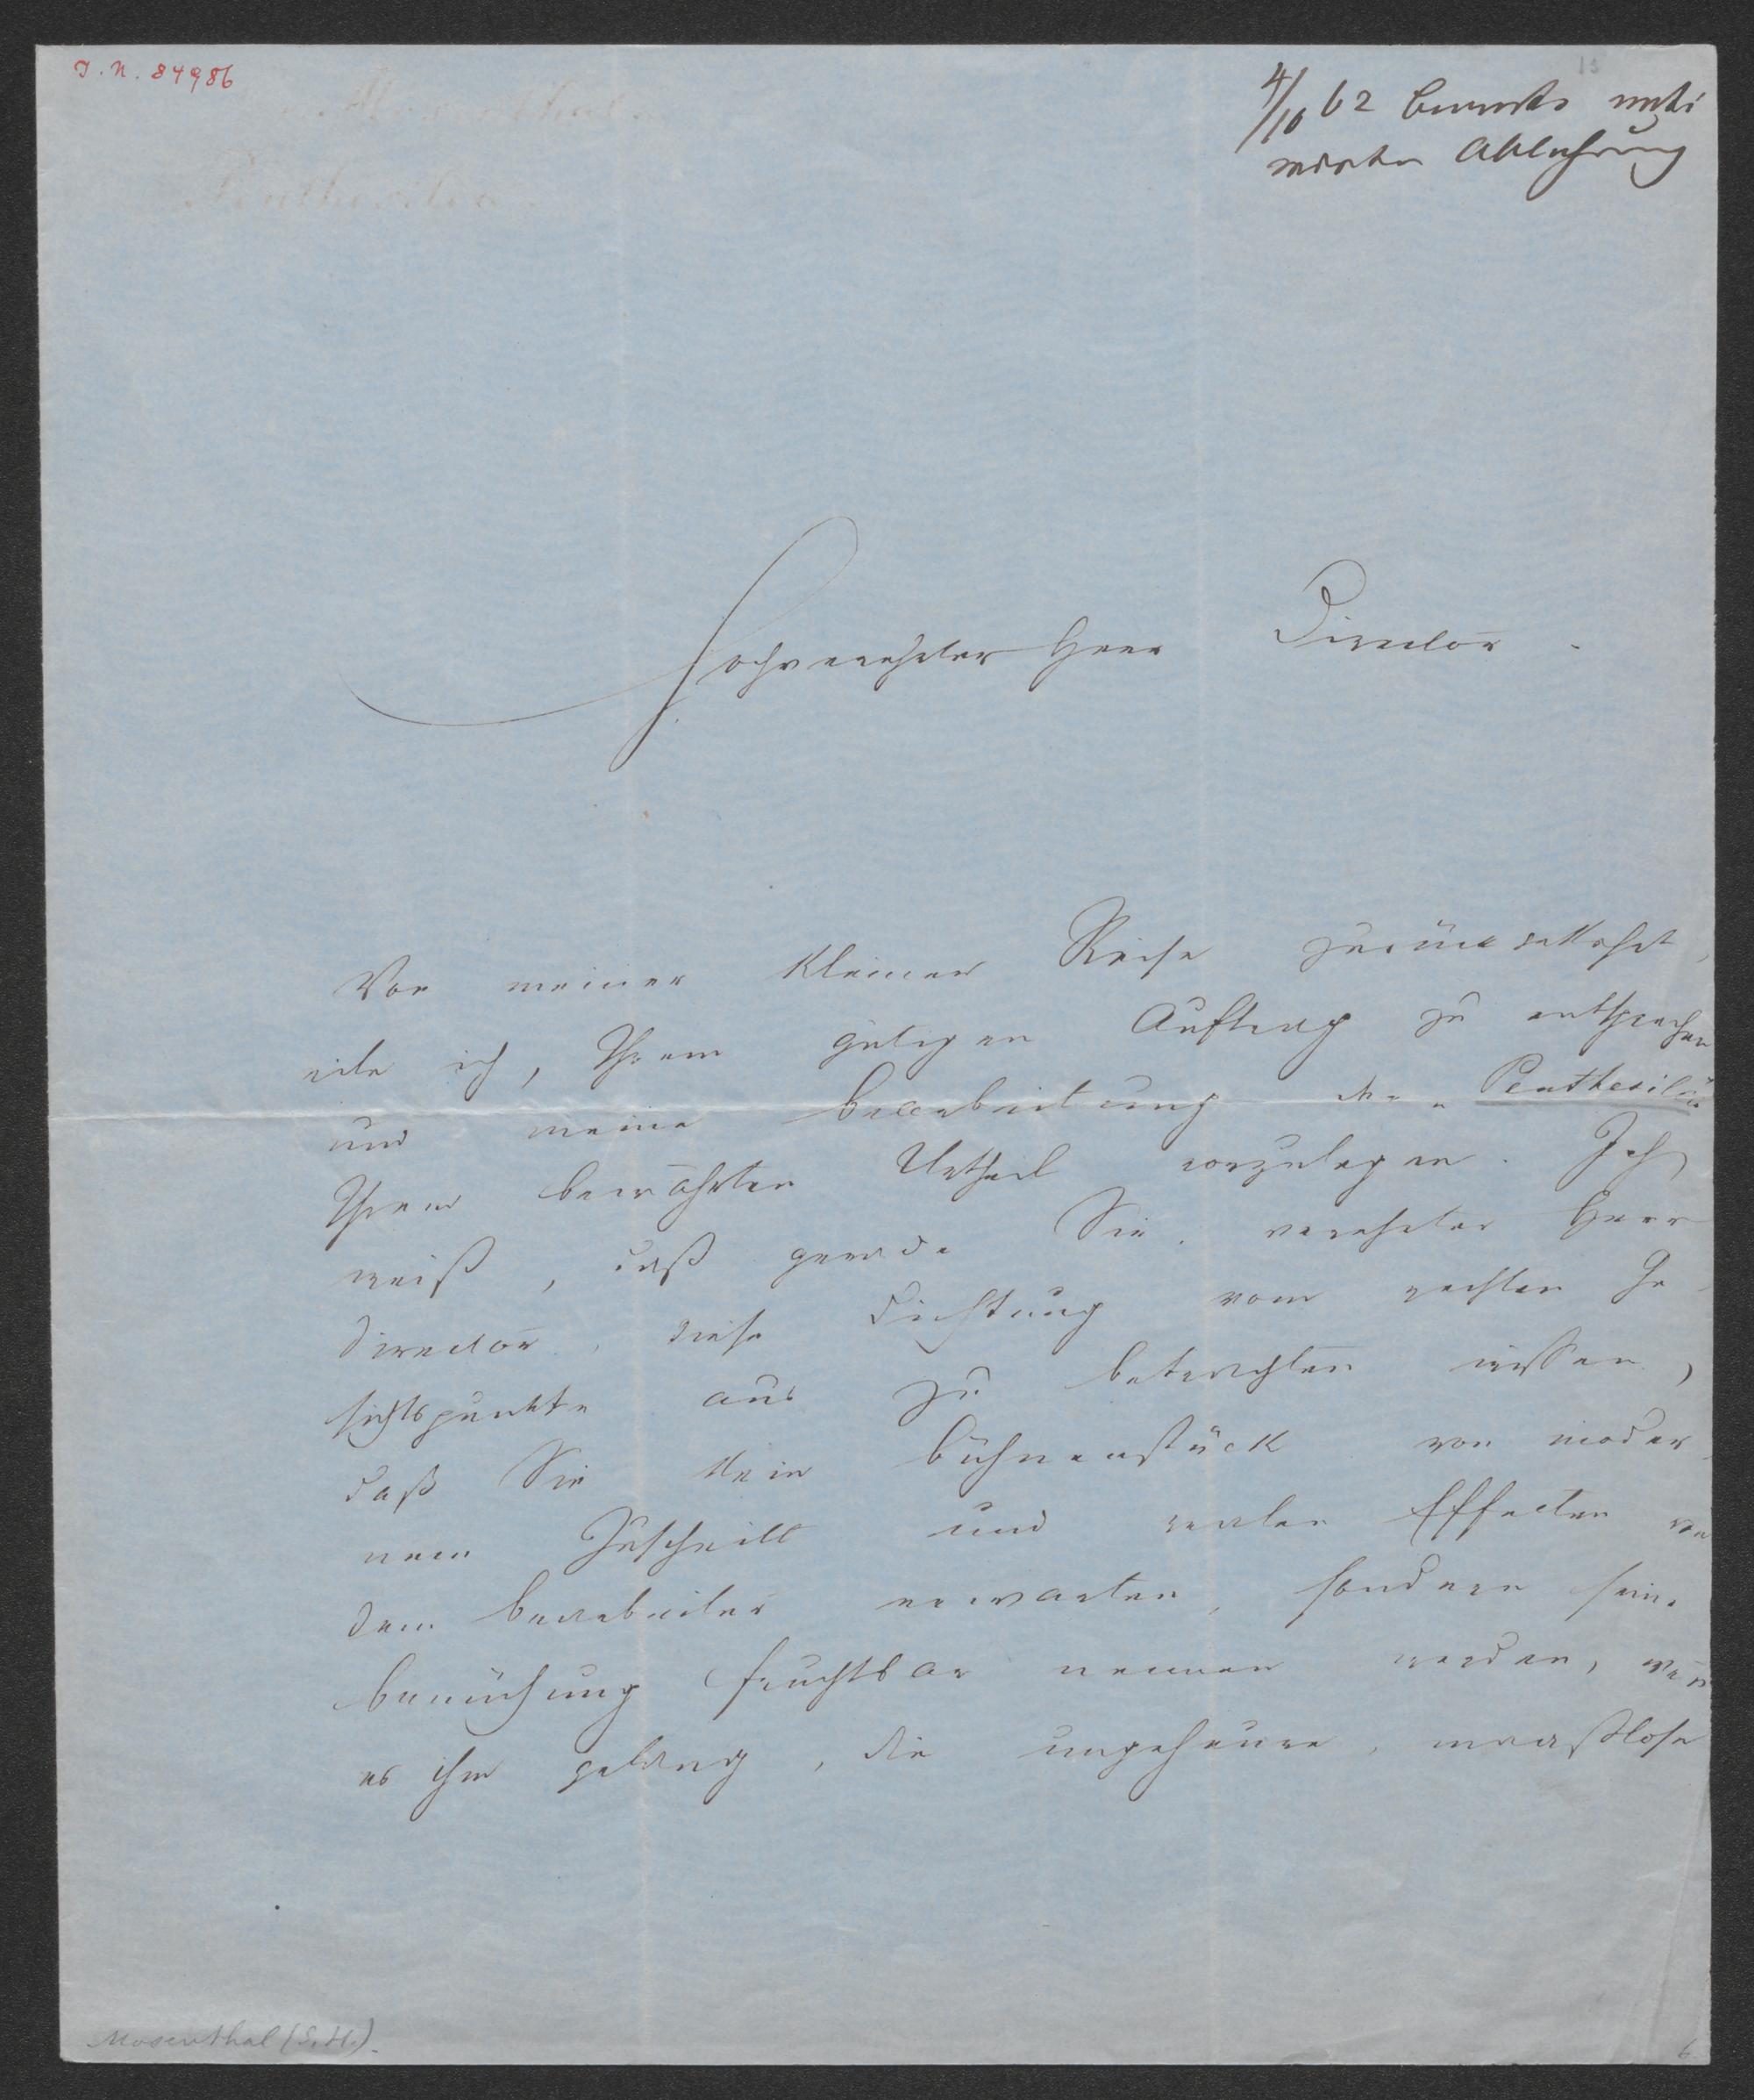 I. N. 84986
4/10 62 moti
virte Ablehnung
Hochverehrter Herr Director.
Von meiner kleinen Reise zurückgekehrt,
eile ich, Ihrem gütigen Auftrag zu entsprechen
und meine Bearbeitung der „Penthesilea“
Ihrem bewährten Urtheil vorzulegen. Ich
weiß, daß gerade Sie, verehrter Herr
Director, diese Dichtung vom rechten Ge-
sichtspunkte aus zu betrachten wissen,
daß Sie kein Bühnenstück von moder-
nem Zuschnitt und realen Effecten von
dem Bearbeiter erwarten, sondern seine
Bemühung fruchtbar nennen werden, wenn
es ihm gelang, die ungeheure, maaßlose
Mosenthal (S. H.).
6